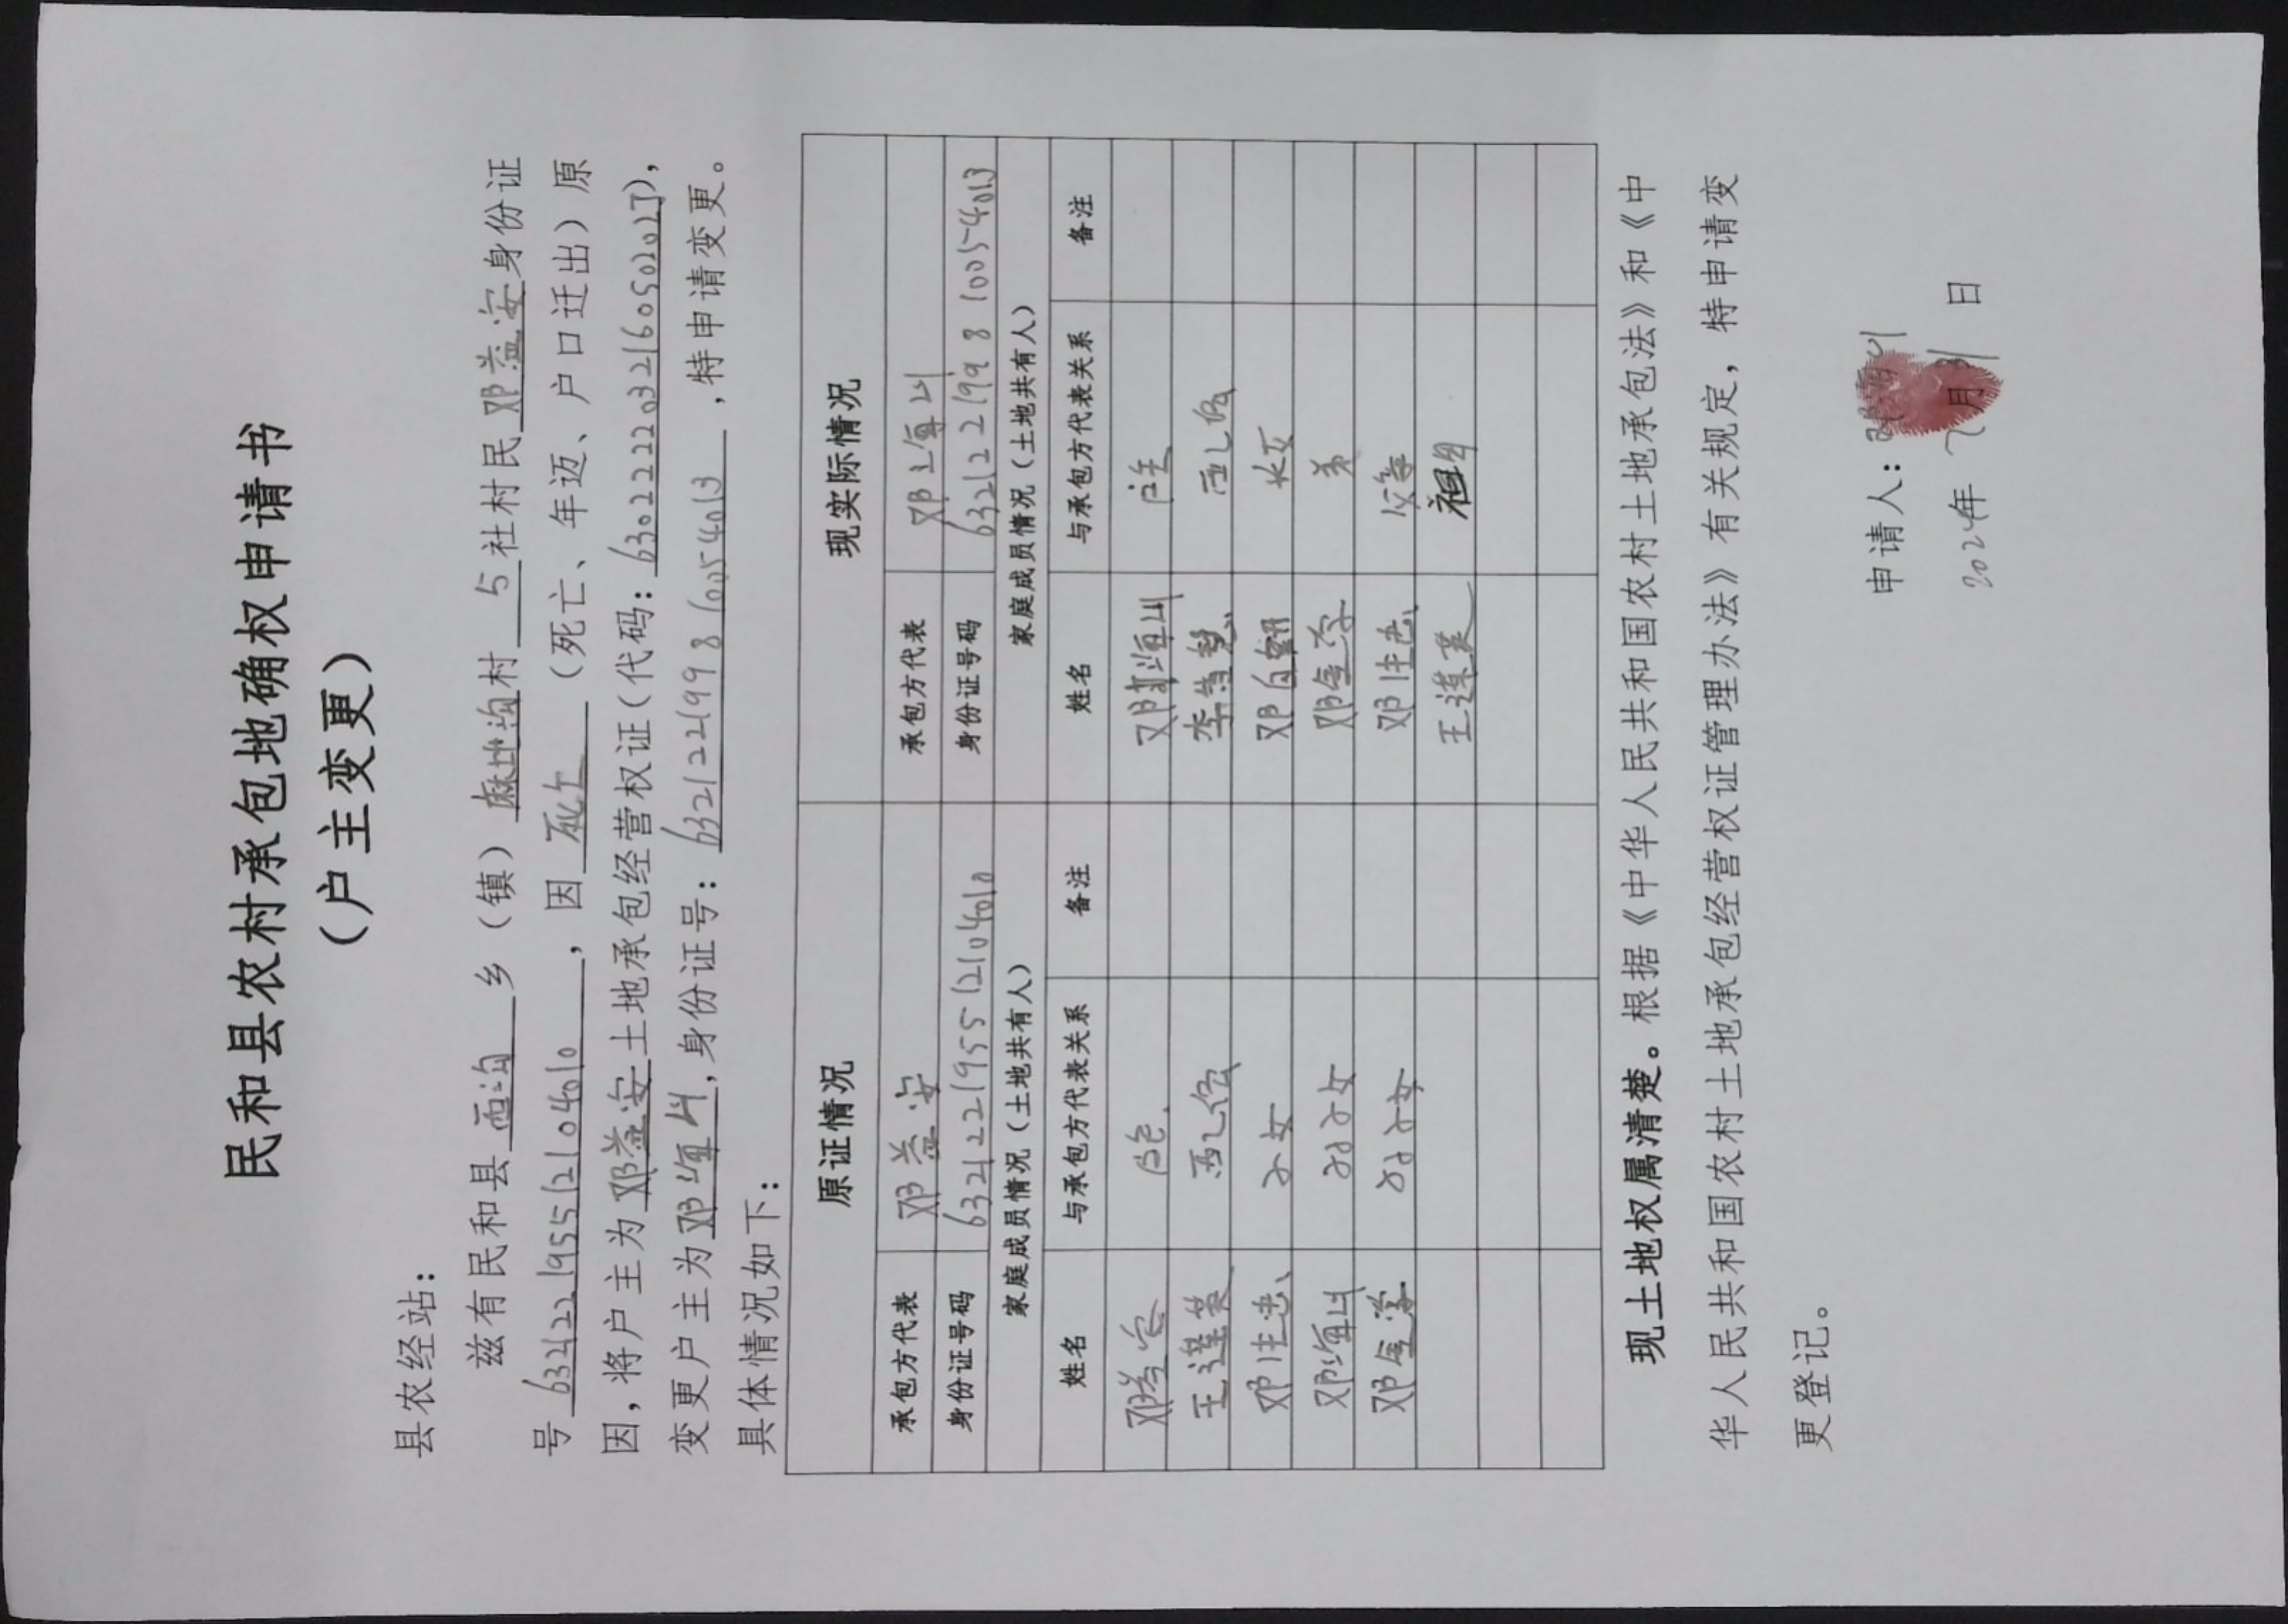 民和县农村承包地确权申请书
（户主变更）
县农经站：
兹有民和县 西沟 乡（镇）麻地沟村 5 社村民 邓益安 身份证
号 632122195512104010 ，因 死亡 （死亡、年迈、户口迁出）原
因，将户主为 邓益安 土地承包经营权证（代码：），
变更户主为 邓海山，身份证号：632122199810054013 ，特申请变更。
具体情况如下：
原证情况 现实际情况
承包方代表 邓益安 承包方代表 邓海山
身份证号码 632122195512104010 身份证号码 632122199810054013
家庭成员情况（土地共有人） 家庭成员情况（土地共有人）
姓名 与承包方代表关系 备注 姓名 与承包方代表关系 备注
邓益安 户主 邓海山 户主
王莲英 配偶 李 慧 配偶
邓 子女 邓 长女
邓海山 孙子女 邓金学 弟
邓金学 孙子女 邓 父亲
王莲英 祖母
现土地权属清楚。根据《中华人民共和国农村土地承包法》和《中
华人民共和国农村土地承包经营权证管理办法》有关规定，特申请变
更登记。
申请人：邓海山
2024年 7月31日